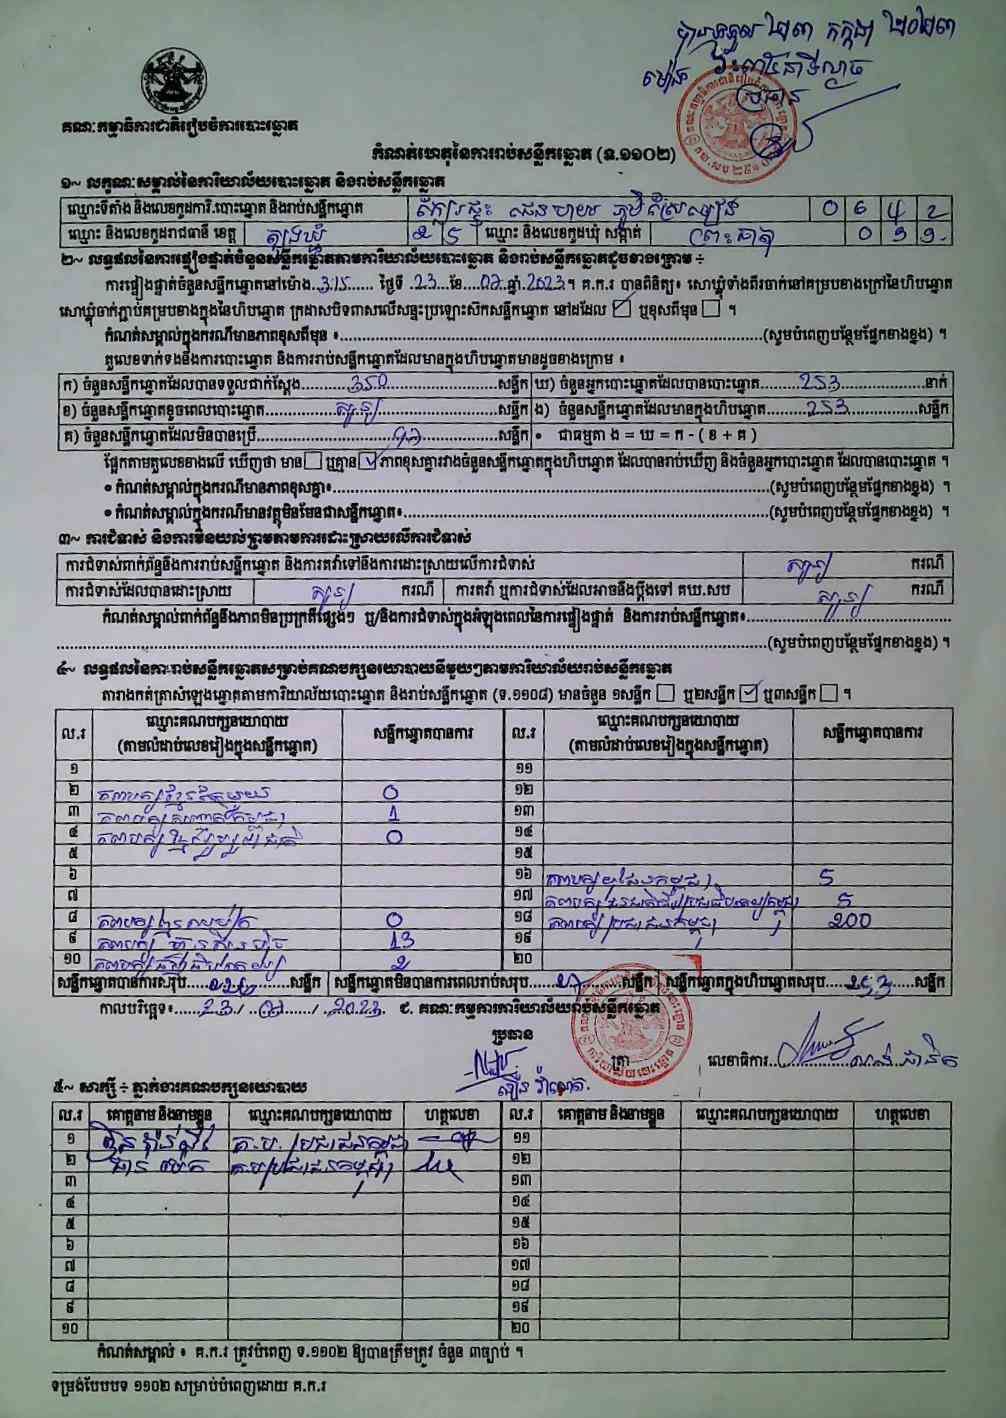 គណៈកម្មាធិការជាតិរៀបចំការបោះឆ្នោត
កំណត់ហេតុនៃការរាប់សន្លឹកឆ្នោត (ទ.១១០២)
១~ លក្ខណៈសម្គាល់នៃការិយាល័យបោះឆ្នោត និងរាប់សន្លឹកឆ្នោត
ឈ្មោះទីតាំង និងលេខកូដការិ.បោះឆ្នោត និងរាប់សន្លឹកឆ្នោត 0 6 4 2
ឈ្មោះ និងលេខកូដរាជធានី ខេត្ត ត្បូងឃ្មុំ 2 5 ឈ្មោះ និងលេខកូដឃុំ សង្កាត់ ព្រះធាតុ
២~ លទ្ធផលនៃការផ្ទៀងផ្ទាត់ចំនួនសន្លឹកឆ្នោតតាមការិយាល័យបោះឆ្នោត និងរាប់សន្លឹកឆ្នោតដូចខាងក្រោម ÷
ការផ្ទៀងផ្ទាត់ចំនួនសន្លឹកឆ្នោតនៅម៉ោង..3:15...... ថ្ងៃទី .23...ខែ....07.ឆ្នាំ.2023។ គ.ក.រ បានពិនិត្យ៖ សោឃ្លុំទាំងពីរចាក់នៅគម្របខាងក្រៅនៃហិបឆ្នោត
សោឃ្លុំចាក់ភ្ជាប់គម្របខាងក្នុងនៃហិបឆ្នោត ក្រដាសបិទពាសលើសន្ទះប្រឡោះស៊កសន្លឹកឆ្នោត នៅដដែល ☑ ឬខុសពីមុន ☐ ។
កំណត់សម្គាល់ក្នុងករណីមានភាពខុសពីមុន ៖..........(សូមបំពេញបន្ថែមផ្នែកខាងខ្នង) ។
តួលេខទាក់ទងនឹងការបោះឆ្នោត និងការរាប់សន្លឹកឆ្នោតដែលមានក្នុងហិបឆ្នោតមានដូចខាងក្រោម ៖
ក) ចំនួនសន្លឹកឆ្នោតដែលបានទទួលជាក់ស្តែង..........350..........សន្លឹក ឃ) ចំនួនអ្នកបោះឆ្នោតដែលបានបោះឆ្នោត..........253..........នាក់
ខ) ចំនួនសន្លឹកឆ្នោតខូចពេលបោះឆ្នោត..........សូន្យ..........សន្លឹក ង) ចំនួនសន្លឹកឆ្នោតដែលមានក្នុងហិបឆ្នោត..........253..........សន្លឹក
គ) ចំនួនសន្លឹកឆ្នោតដែលមិនបានប្រើ..........97..........សន្លឹក • ជាធម្មតា ង = ឃ = ក - ( ខ + គ )
ផ្អែកតាមតួលេខខាងលើ ឃើញថា មាន ☐ ឬគ្មាន ☑ ភាពខុសគ្នារវាងចំនួនសន្លឹកឆ្នោតក្នុងហិបឆ្នោត ដែលបានរាប់ឃើញ និងចំនួនអ្នកបោះឆ្នោត ដែលបានបោះឆ្នោត ។
• កំណត់សម្គាល់ក្នុងករណីមានភាពខុសគ្នា៖..........(សូមបំពេញបន្ថែមផ្នែកខាងខ្នង) ។
• កំណត់សម្គាល់ក្នុងករណីមានវត្ថុមិនមែនជាសន្លឹកឆ្នោត៖..........(សូមបំពេញបន្ថែមផ្នែកខាងខ្នង) ។
៣~ ការជំទាស់ និងការមិនយល់ព្រមតាមការដោះស្រាយលើការជំទាស់
ការជំទាស់ពាក់ព័ន្ធនឹងការរាប់សន្លឹកឆ្នោត និងការតវ៉ាទៅនឹងការដោះស្រាយលើការជំទាស់ សូន្យ ករណី
ការជំទាស់ដែលបានដោះស្រាយ សូន្យ ករណី ការតវ៉ា ឬការជំទាស់ដែលអាចនឹងប្តឹងទៅ គឃ.សប សូន្យ ករណី
កំណត់សម្គាល់ពាក់ព័ន្ធនឹងភាពមិនប្រក្រតីផ្សេងៗ ឬ/និងការជំទាស់ក្នុងអំឡុងពេលនៃការផ្ទៀងផ្ទាត់ និងការរាប់សន្លឹកឆ្នោត៖..........
..........(សូមបំពេញបន្ថែមផ្នែកខាងខ្នង) ។
៤~ លទ្ធផលនៃការរាប់សន្លឹកឆ្នោតសម្រាប់គណបក្សនយោបាយនីមួយៗតាមការិយាល័យរាប់សន្លឹកឆ្នោត
តារាងកត់ត្រាសំឡេងឆ្នោតតាមការិយាល័យបោះឆ្នោត និងរាប់សន្លឹកឆ្នោត (ទ.១១០៨) មានចំនួន ១សន្លឹក ☐ ឬ២សន្លឹក ☑ ឬ៣សន្លឹក ☐ ។
ល.រ ឈ្មោះគណបក្សនយោបាយ (តាមលំដាប់លេខរៀងក្នុងសន្លឹកឆ្នោត) សន្លឹកឆ្នោតបានការ ល.រ ឈ្មោះគណបក្សនយោបាយ (តាមលំដាប់លេខរៀងក្នុងសន្លឹកឆ្នោត) សន្លឹកឆ្នោតបានការ
១ ១១
២ គណបក្សខ្មែរតែមួយ 0 ១២
៣ 1 ១៣
៤ 0 ១៤
៥ ១៥
៦ ១៦ 5
៧ ១៧ 5
៨ 0 ១៨ គណបក្សប្រជាជនកម្ពុជា 200
៩ 13 ១៩
១០ 2 ២០
សន្លឹកឆ្នោតបានការសរុប..........សន្លឹក សន្លឹកឆ្នោតមិនបានការពេលរាប់សរុប.....27.....សន្លឹក សន្លឹកឆ្នោតក្នុងហិបឆ្នោតសរុប.....253.....សន្លឹក
កាលបរិច្ឆេទ៖......23./..07..../..2023. ជ. គណៈកម្មការការិយាល័យរាប់សន្លឹកឆ្នោត
ប្រធាន
ត្រា លេខាធិការ..........
៥~ សាក្សី ÷ ភ្នាក់ងារគណបក្សនយោបាយ
ល.រ គោត្តនាម និងនាមខ្លួន ឈ្មោះគណបក្សនយោបាយ ហត្ថលេខា ល.រ គោត្តនាម និងនាមខ្លួន ឈ្មោះគណបក្សនយោបាយ ហត្ថលេខា
១ គ.ប. ប្រជាជនកម្ពុជា ១១
២ គ.បប្រជាជនកម្ពុជា ១២
៣ ១៣
៤ ១៤
៥ ១៥
៦ ១៦
៧ ១៧
៨ ១៨
៩ ១៩
១០ ២០
កំណត់សម្គាល់ ៖ គ.ក.រ ត្រូវបំពេញ ទ.១១០២ ឱ្យបានត្រឹមត្រូវ ចំនួន ៣ច្បាប់ ។
ទម្រង់បែបបទ ១១០២ សម្រាប់បំពេញដោយ គ.ក.រ